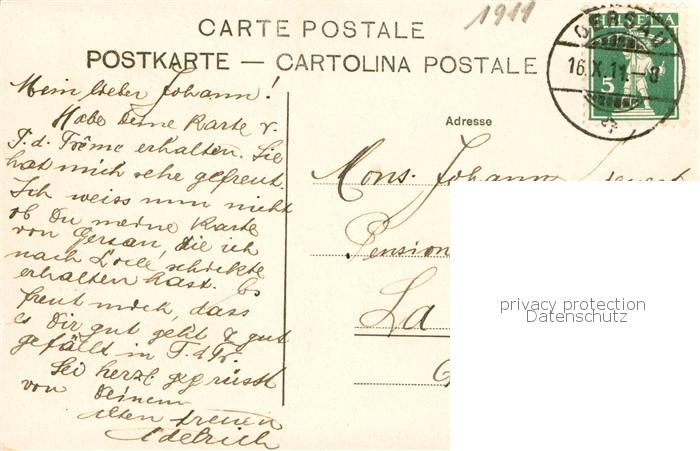 1911
CARTE POSTALE
POSTKARTE — CARTOLINA POSTALE
HELVETIA
5
GERSAU
16.X.11.-8
Mein lieber Johann!
Habe Deine Karte v.
T. d. Trême erhalten. Sie
hat mich sehr gefreut.
Ich weiss nun nicht
ob Du meine Karte
von Gersau, die ich
nach Locle schickte
erhalten hast. Es
freut mich, dass
es Dir gut geht & gut
gefällt in T. d. Tr.
Sei herzl. gegrüsst
von Deinem
alten treuen
Adresse
Mons. Johann
Pension
La
privacy protection
Datenschutz